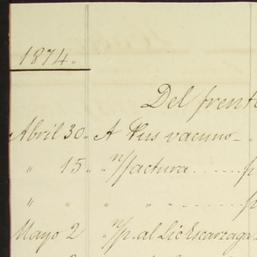 1874.
Del frent
Abril 30. A Sus vacuno
" 15. " n/factura p
" " " " " p
Mayo 2 " n/p. al Lic Escarzaga